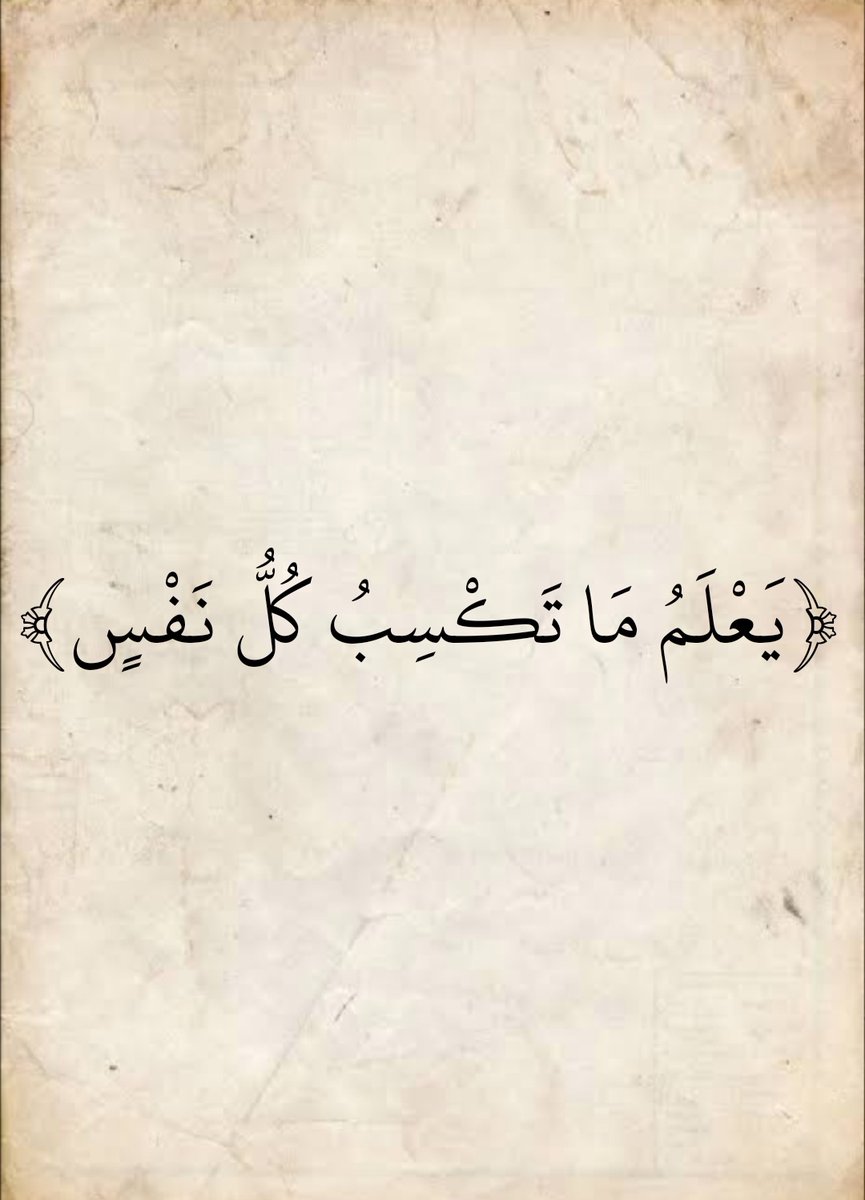 ﴿يَعْلَمُ مَا تَكْسِبُ كُلُّ نَفْسٍ﴾